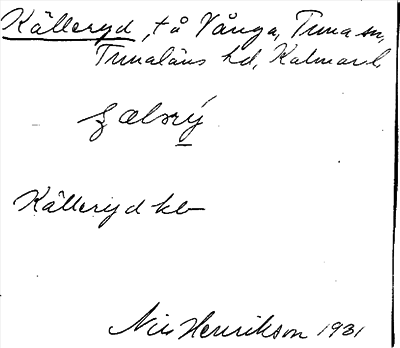 Källeryd, t å Vånga, Tuna sn,
Tunaläns hd, Kalmar l.
Källeryd kb
Nils Henrikson 1931